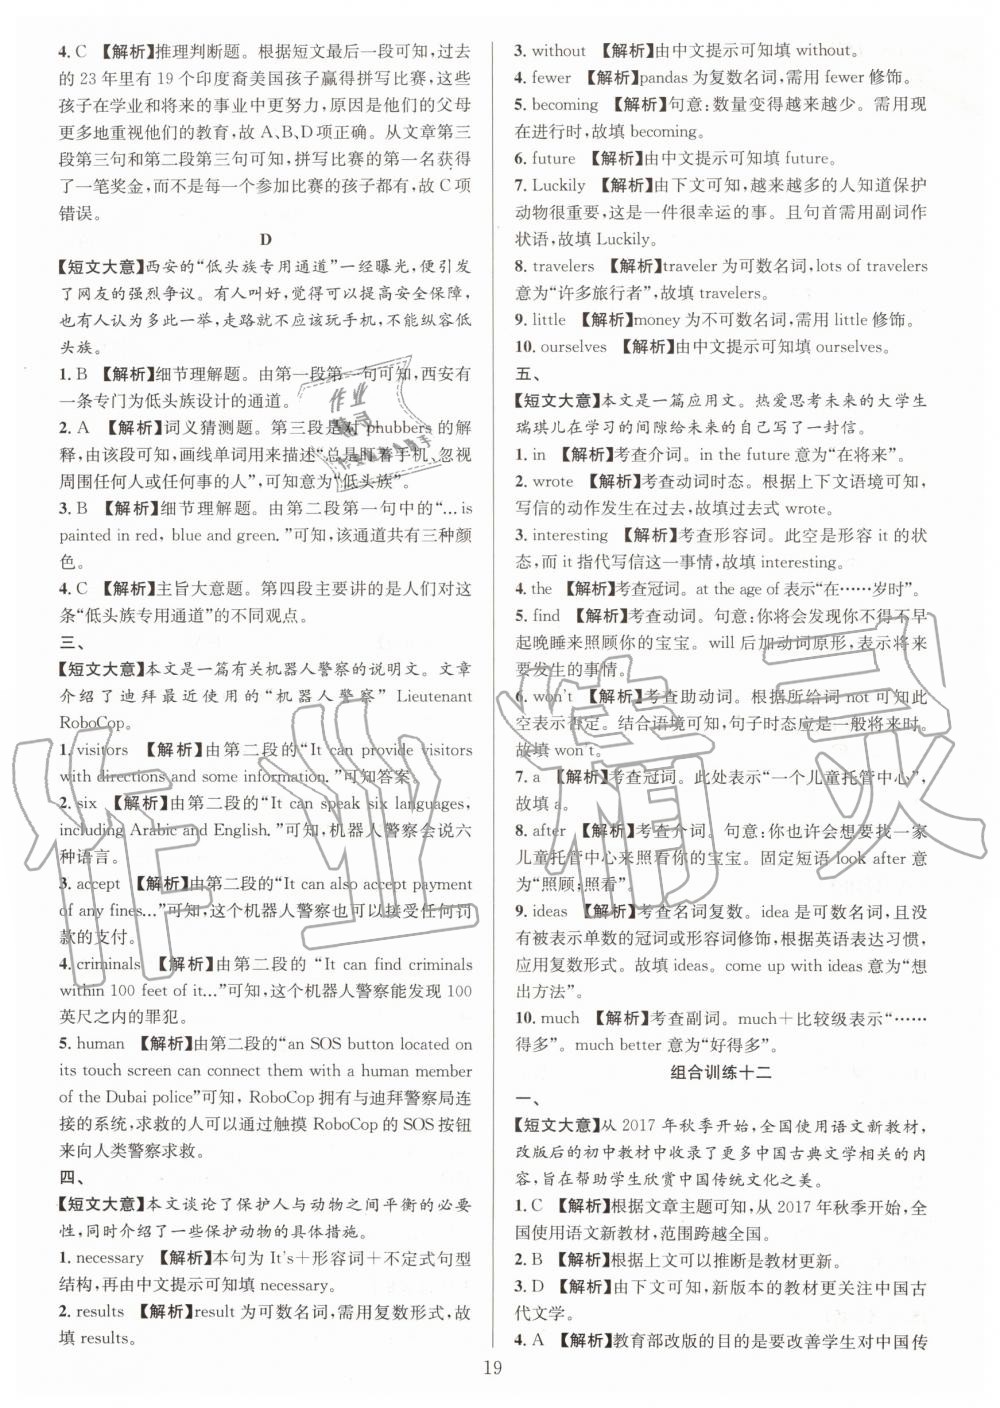 4. C 【解析】推理判断题。根据短文最后一段可知,过去
的 23 年里有 19 个印度裔美国孩子赢得拼写比赛,这些
孩子在学业和将来的事业中更努力,原因是他们的父母
更多地重视他们的教育,故 A、B、D 项正确。从文章第三
段第三句和第二段第三句可知,拼写比赛的第一名获得
了一笔奖金,而不是每一个参加比赛的孩子都有,故 C 项
错误。
D
【短文大意】西安的“低头族专用通道”一经曝光,便引发
了网友的强烈争议。有人叫好,觉得可以提高安全保障,
也有人认为多此一举,走路就不应该玩手机,不能纵容低
头族。
1. B 【解析】细节理解题。由第一段第一句可知,西安有
一条专门为低头族设计的通道。
2. A 【解析】词义猜测题。第三段是对 phubbers 的解
释,由该段可知,画线单词用来描述“总是盯着手机、忽视
周围任何人或任何事的人”,可知意为“低头族”。
3. B 【解析】细节理解题。由第二段第一句中的“... is
painted in red, blue and green. ”可知,该通道共有三种颜
色。
4. C 【解析】主旨大意题。第四段主要讲的是人们对这
条“低头族专用通道”的不同观点。
三、
【短文大意】本文是一篇有关机器人警察的说明文。文章
介绍了迪拜最近使用的“机器人警察” Lieutenant
RoboCop。
1. visitors 【解析】由第二段的“It can provide visitors
with directions and some information. ”可知答案。
2. six 【解析】由第二段的“It can speak six languages,
including Arabic and English. ”可知,机器人警察会说六
种语言。
3. accept 【解析】由第二段的“It can also accept payment
of any fines...”可知,这个机器人警察也可以接受任何罚
款的支付。
4. criminals 【解析】由第二段的 “It can find criminals
within 100 feet of it...”可知,这个机器人警察能发现 100
英尺之内的罪犯。
5. human 【解析】由第二段的“an SOS button located on
its touch screen can connect them with a human member
of the Dubai police”可知, RoboCop 拥有与迪拜警察局连
接的系统,求救的人可以通过触摸 RoboCop 的 SOS 按钮
来向人类警察求救。
四、
【短文大意】本文谈论了保护人与动物之间平衡的必要
性,同时介绍了一些保护动物的具体措施。
1. necessary 【解析】本句为 It's+形容词+不定式句型
结构,再由中文提示可知填 necessary.
2. results 【解析】result 为可数名词,需用复数形式,故
填 results。
3. without 【解析】由中文提示可知填 without。
4. fewer 【解析】pandas 为复数名词,需用 fewer 修饰。
5. becoming 【解析】句意:数量变得越来越少。需用现
在进行时,故填 becoming.
6. future 【解析】由中文提示可知填 future。
7. Luckily 【解析】由下文可知,越来越多的人知道保护
动物很重要,这是一件很幸运的事。且句首需用副词作
状语,故填 Luckily。
8. travelers 【解析】traveler 为可数名词,lots of travelers
意为“许多旅行者”,故填 travelers。
9. little 【解析】money 为不可数名词,需用 little 修饰。
10. ourselves 【解析】由中文提示可知填 ourselves。
五、
【短文大意】本文是一篇应用文。热爱思考未来的大学生
瑞琪儿在学习的间隙给未来的自己写了一封信。
1. in 【解析】考查介词。in the future 意为“在将来”。
2. wrote 【解析】考查动词时态。根据上下文语境可知,
写信的动作发生在过去,故填过去式 wrote。
3. interesting 【解析】考查形容词。此空是形容 it 的状
态,而 it 指代写信这一事情,故填 interesting。
4. the 【解析】考查冠词。at the age of 表示“在……岁时”。
5. find 【解析】考查动词。句意:你将会发现你不得不早
起晚睡来照顾你的宝宝。will 后加动词原形,表示将来
要发生的事情。
6. won't 【解析】考查助动词。根据所给词 not 可知此
空表示否定。结合语境可知,句子时态应是一般将来时。
故填 won't。
7. a 【解析】考查冠词。此处表示“一个儿童托管中心”,
故填 a。
8. after 【解析】考查介词。句意:你也许会想要找一家
儿童托管中心来照看你的宝宝。固定短语 look after 意
为“照顾;照看”。
9. ideas 【解析】考查名词复数。idea 是可数名词,且没
有被表示单数的冠词或形容词修饰,根据英语表达习惯,
应用复数形式。故填 ideas。come up with ideas 意为“想
出方法”。
10. much 【解析】考查副词。much+比较级表示“……
得多”。much better 意为“好得多”。
组合训练十二
一、
【短文大意】从 2017 年秋季开始,全国使用语文新教材,
改版后的初中教材中收录了更多中国古典文学相关的内
容,旨在帮助学生欣赏中国传统文化之美。
1. C 【解析】根据文章主题可知,从 2017 年秋季开始,全
国使用语文新教材,范围跨越全国。
2. B 【解析】根据上文可以推断是教材更新。
3. D 【解析】由下文可知,新版本的教材更关注中国古
代文学。
4. A 【解析】教育部改版的目的是要改善学生对中国传
19
作业精灵